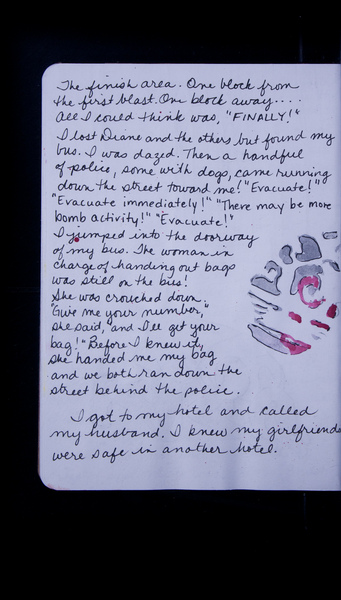 The finish area. One block from
the first blast. One block away....
All I could think was, "FINALLY!"
I lost Diane and the others but found my
bus. I was dazed. Then a handful
of police, some with dogs, came running
down the street toward me! "Evacuate!"
"Evacuate immediately!" "There may be more
bomb activity!" "Evacuate!"
I jumped into the doorway
of my bus. The woman in
charge of handing out bags
was still on the bus!
She was crouched down.
"Give me your number,"
she said, "and I'll get your
bag!" Before I knew it,
she handed me my bag
and we both ran down the
street behind the police.
I got to my hotel and called
my husband. I knew my girlfriends
were safe in another hotel.